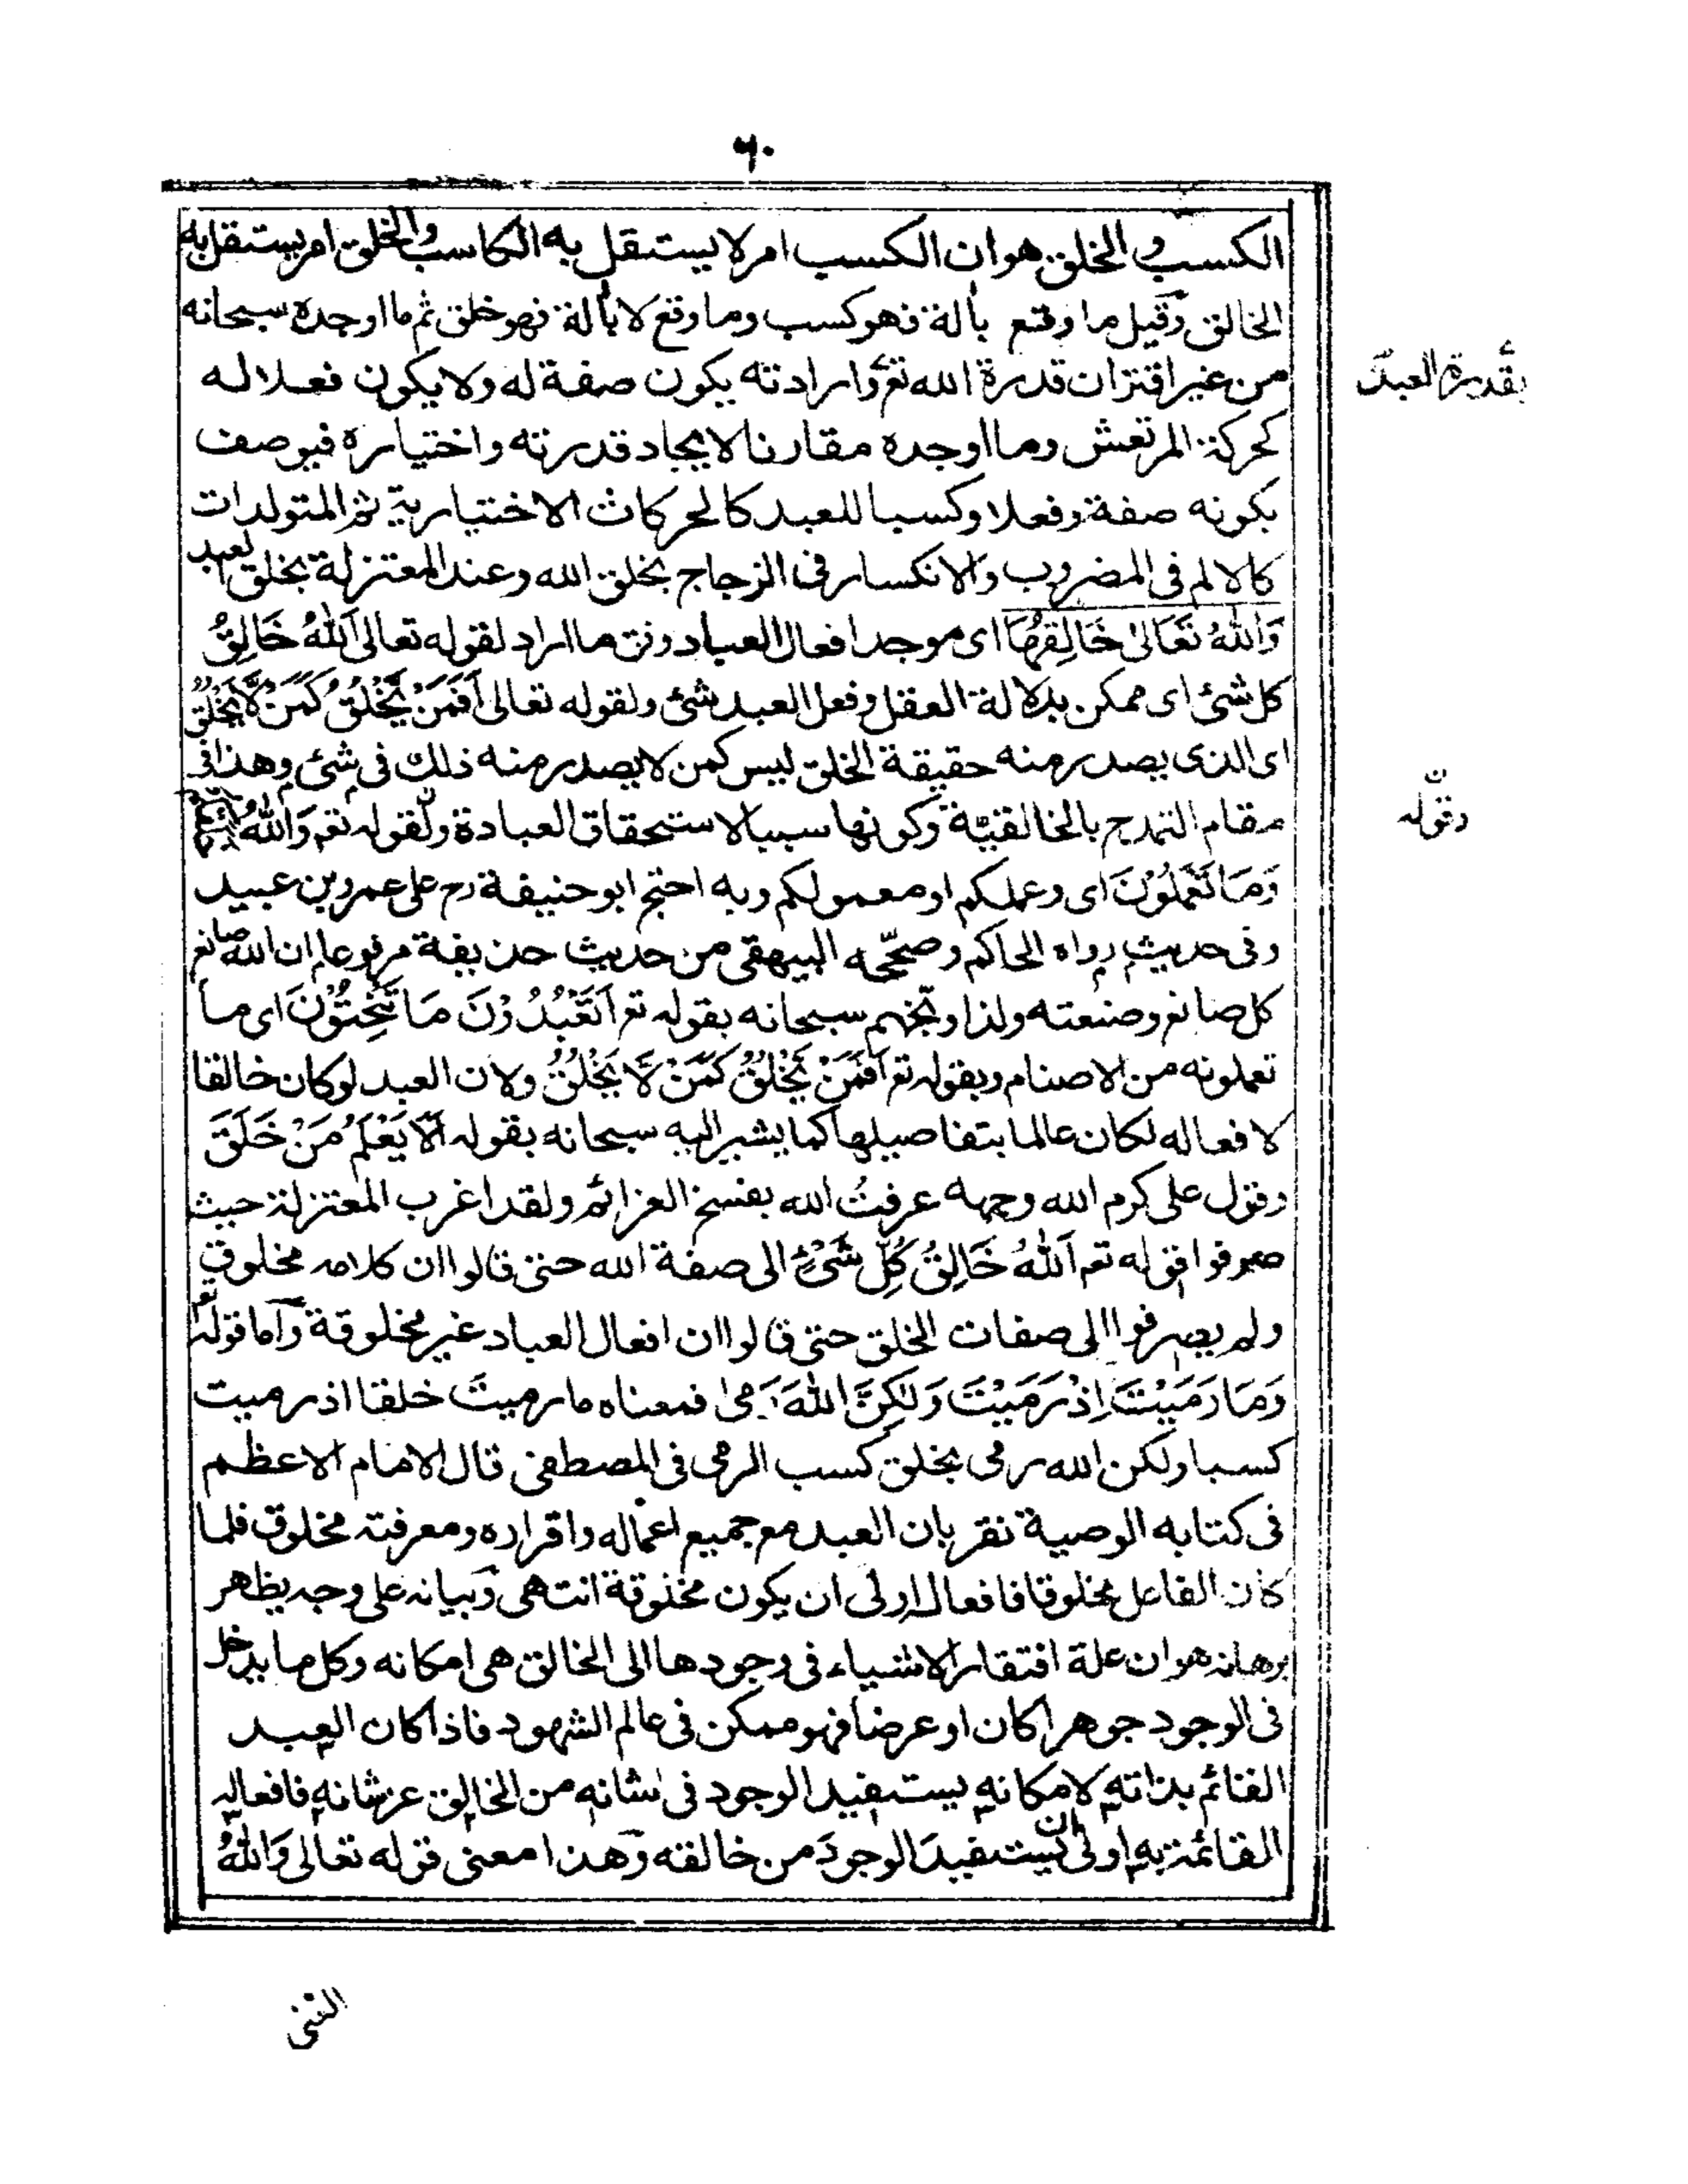 ٦٠
الكسب والخلق هو ان الكسب امر لا يستقل به الكاسب والخلق امر يستقل به
الخالق وقيل ما وقع بآلة فهو كسب وما وقع لا بآلة فهو خلق ثم ما اوجده سبحانه
من غير اقتران قدرة الله تع وارادته يكون صفة له ولا يكون فعلا له
بقدرة العبد
كحركة المرتعش وما اوجده مقارنا لايجاد قدرته واختياره فيوصف
بكونه صفة وفعلا وكسبا للعبد كالحركات الاختيارية ثم المتولدات
كالالم فى المضروب والانكسار فى الزجاج بخلق الله وعند المعتزلة بخلق العبد
وَاللّٰهُ تَعَالىٰ خَالِقُهَا اى موجد افعال العباد وفق ما اراد لقوله تعالى اَللّٰهُ خَالِقُ
كل شئ اى ممكن بدلالة العقل وفعل العبد شئ ولقوله تعالى اَفَمَنْ يَّخْلُقُ كَمَنْ لَّا يَخْلُقُ
اى الذى يصدر منه حقيقة الخلق ليس كمن لا يصدر منه ذلك فى شئ وهذا فى
مقام التمدح بالخالقيّة وكونها سببا لاستحقاق العبادة ولقوله تع وَاللّٰهُ خَلَقَكُمْ
وقوله
وَمَا تَعْمَلُوْنَ اى وعملكم او معمولكم وبه احتج ابو حنيفة رح على عمرو بن عبيد
وفى حديث رواه الحاكم وصحّحه البيهقى من حديث حذيفة مرفوعا ان الله صانع
كل صانع وصنعته ولذا وبّخهم سبحانه بقوله تع اَتَعْبُدُوْنَ مَا تَنْحِتُوْنَ اى ما
تعملونه من الاصنام وبقوله تع اَفَمَنْ يَّخْلُقُ كَمَنْ لَّا يَخْلُقُ ولان العبد لو كان خالقا
لافعاله لكان عالما بتفاصيلها كما يشير اليه سبحانه بقوله اَلَا يَعْلَمُ مَنْ خَلَقَ
وقول على كرم الله وجهه عرفتُ الله بفسخ العزائم ولقد اغرب المعتزلة حيث
صرفوا قوله تع اَللّٰهُ خَالِقُ كُلِّ شَىْءٍ الى صفة الله حتى قالوا ان كلامه مخلوق
ولم يصرفوا الى صفات الخلق حتى قالوا ان افعال العباد غير مخلوقة وآما قوله تع
وَمَا رَمَيْتَ اِذْ رَمَيْتَ وَلٰكِنَّ اللّٰهَ رَمىٰ فمعناه ما رميتَ خلقا اذ رميت
كسبا ولكن الله رمى بخلق كسب الرمى فى المصطفى قال الامام الاعظم
فى كتابه الوصية نقر بان العبد مع جميع اعماله واقراره ومعرفته مخلوق فلما
كان الفاعل مخلوقا فافعاله اولى ان يكون مخلوقة انتهى وبيانه على وجه يظهر
برهانه هو ان علة افتقار الاشياء فى وجودها الى الخالق هى امكانه وكل ما يدخل
فى الوجود جوهرا كان او عرضا فهو ممكن فى عالم الشهود فاذا كان العبد
القائم بذاته لامكانه يستفيد الوجود فى شانه من الخالق عز شانه فافعاله
القائمة به اولى ان يستفيدَ الوجودَ من خالقه وهذا معنى قوله تعالى وَاللّٰهُ
الغنى